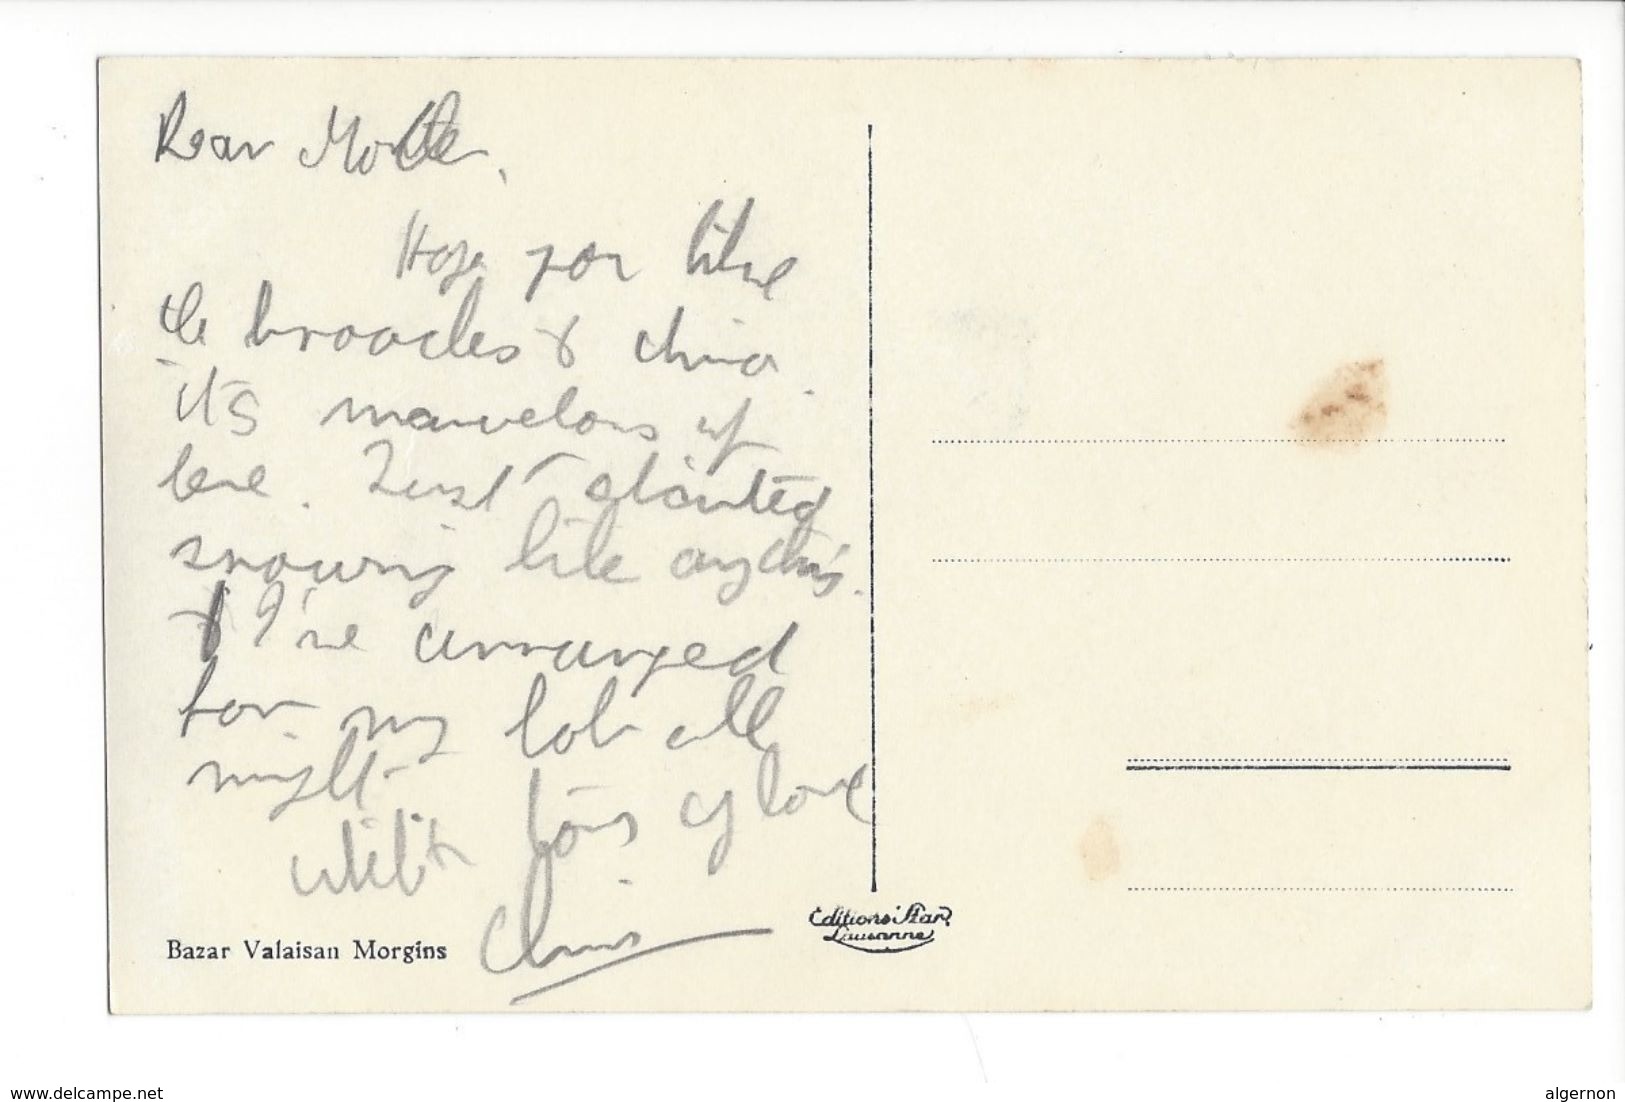 Dear
Hope you like
the brooches & china.
it's marvelous up
here. Just started
snowing like anything.
& I've arranged
for my bob all
right
with tons of love
Chris
Bazar Valaisan Morgins
Editions Star
Lausanne
www.delcampe.net
algernon